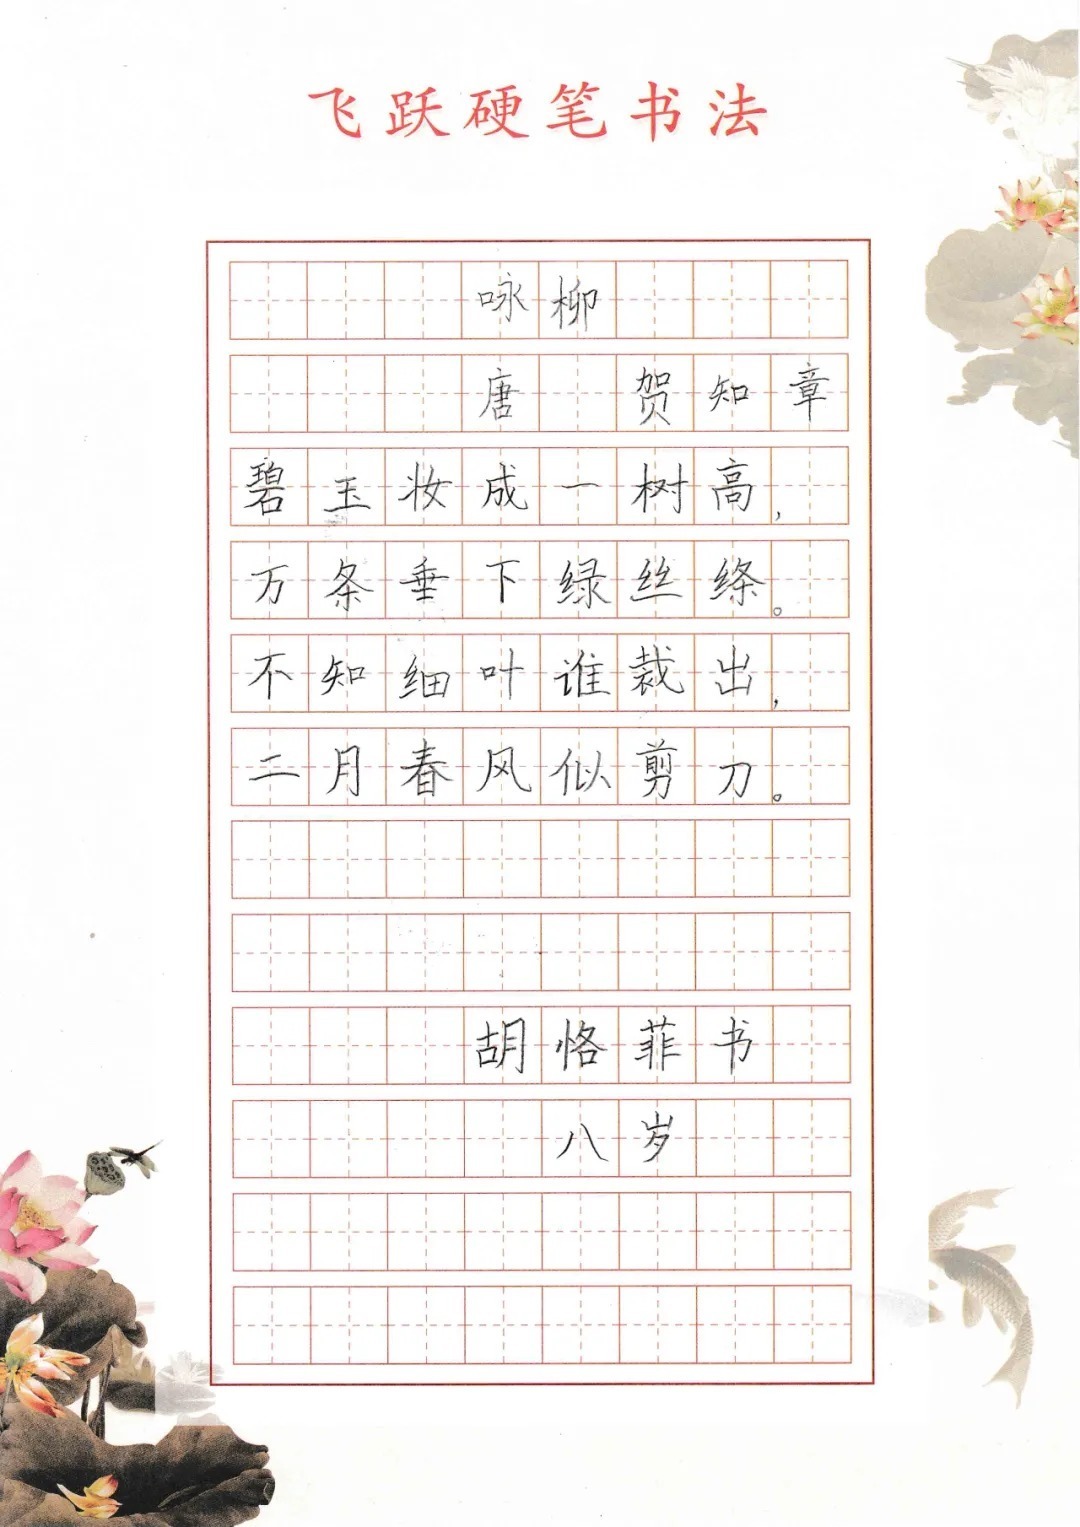 飞跃硬笔书法
咏柳
唐 贺知章
碧玉妆成一树高,
万条垂下绿丝绦。
不知细叶谁裁出,
二月春风似剪刀。
胡恪菲书
八岁